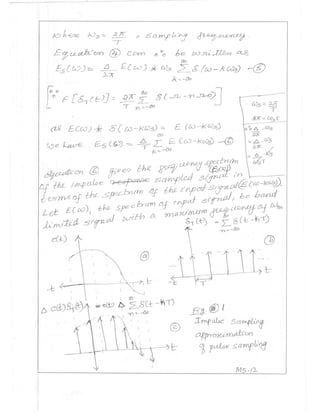 where ω₀ = 2π/T = sampling frequency.
Equation ④ can be written as
E_s(ω) = Δ/2π E(ω) * ω₀ Σ_{k=-∞}^{∞} δ(ω-kω₀) -⑤
[∵ F[δ_T(t)] = 2π/T Σ_{n=-∞}^{∞} δ(Ω-nΩ₀)]
ω₀ = 2π/T
2π = ω₀T
as E(ω) * δ(ω-kω₀) = E(ω-kω₀)
= Δ/2π . ω₀
we have E_s(ω) = Δ/T Σ_{n=-∞}^{∞} E(ω-kω₀) -⑥
Equation ⑥ gives the frequency spectrum
of the impulse response sampled signal in
terms of the spectrum of the input signal E(ω-kω₀)
Let E(ω), the spectrum of input signal, be band
limited signal with a maximum frequency of ωm
e(t)
ⓐ
δ_T(t) = Σ_{n=-∞}^{∞} δ(t-kT)
ⓑ
-t
t
-t
T
t
Δ e(t) δ_T(t) = e(t) Δ Σ_{n=-∞}^{∞} δ(t-kT)
ⓒ
t
Fig 1
Impulse sampling
approximation
of pulse sampling
M5-12